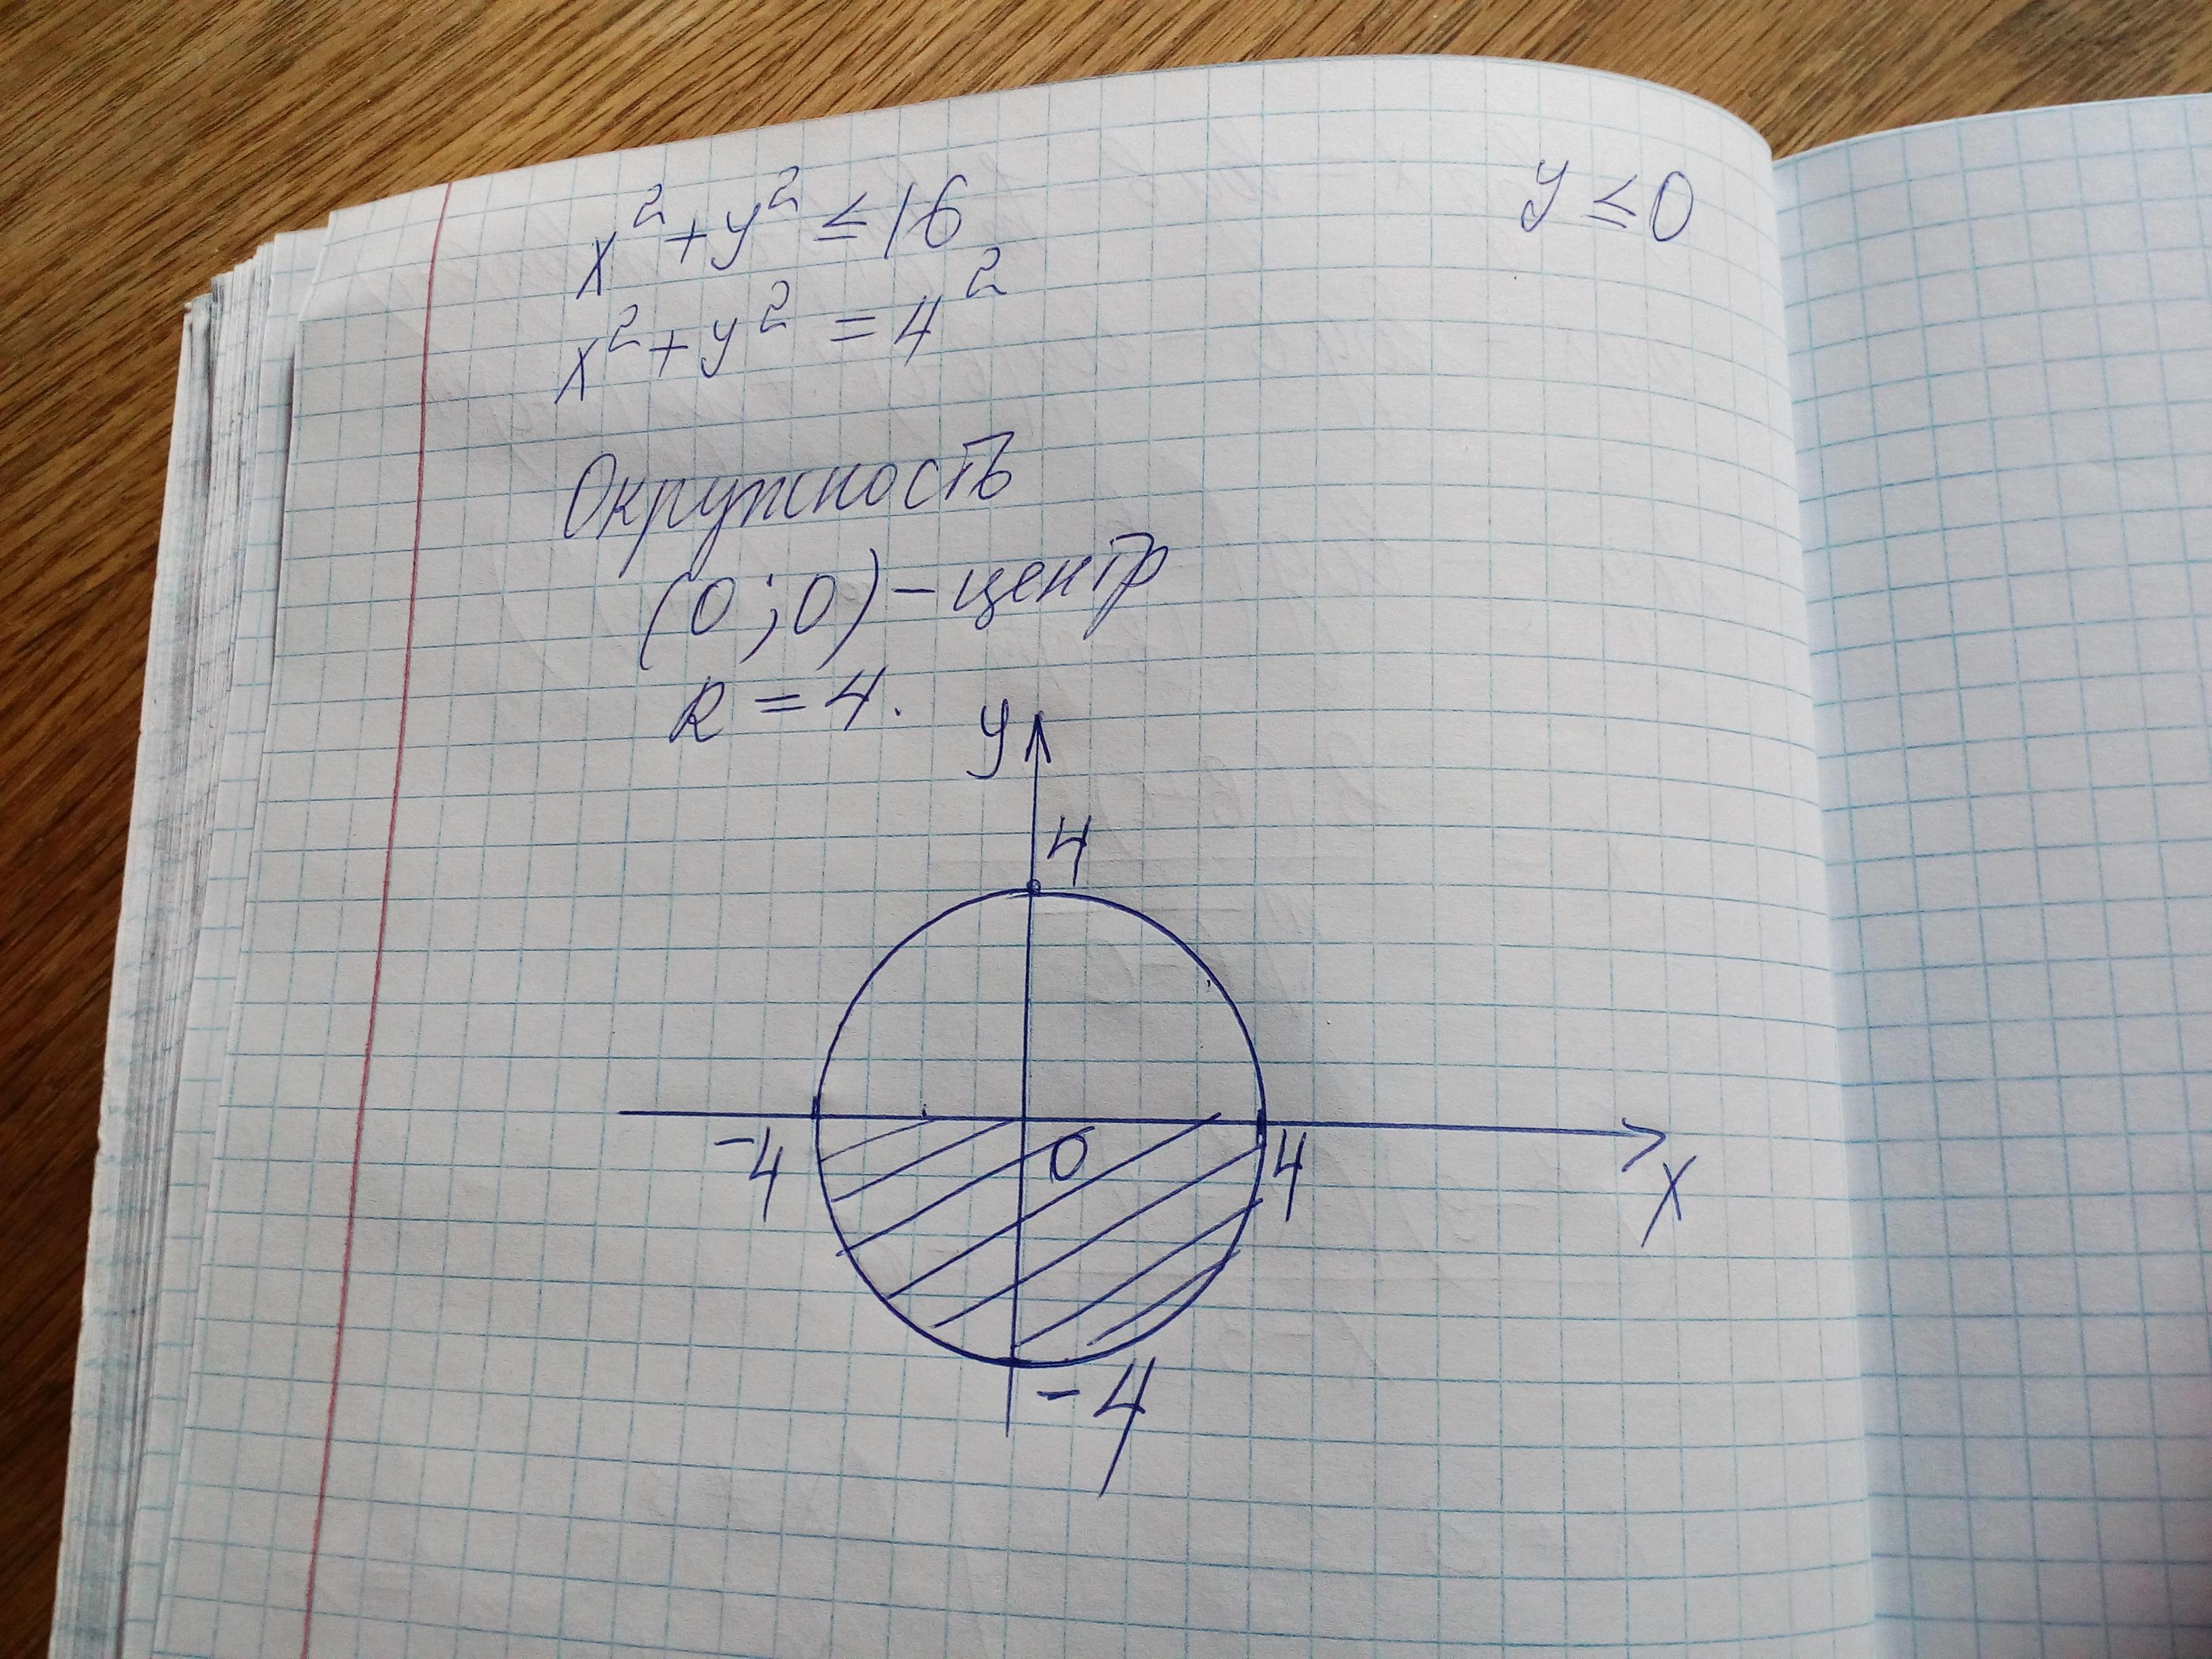 x² + y² ≤ 16
y ≤ 0
x² + y² = 4²
Окружность
(0; 0) – центр
R = 4.
y
4
-4
0
4
x
-4